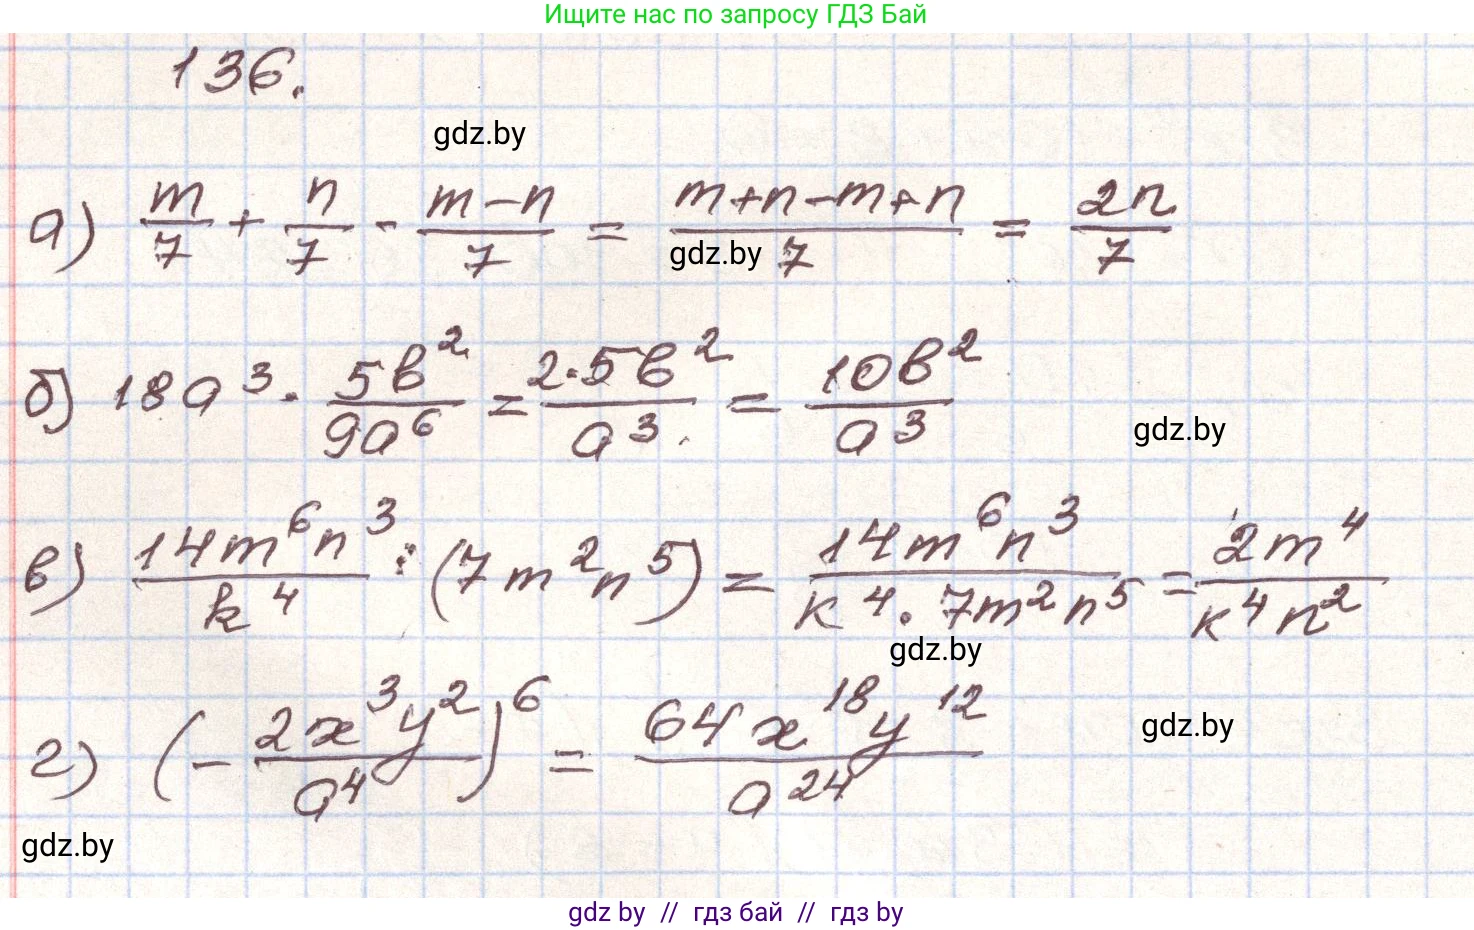 Ищите нас по запросу ГДЗ Бай
136.
gdz.by
а) m/7 + n/7 - m-n/7 = m+n-m+n/7 = 2n/7
gdz.by
б) 18a³ · 5b²/9a⁶ = 2·5b²/a³ = 10b²/a³
gdz.by
в) 14m⁶n³/k⁴ : (7m²n⁵) = 14m⁶n³/k⁴·7m²n⁵ = 2m⁴/k⁴n²
gdz.by
г) (- 2x³y²/a⁴)⁶ = 64x¹⁸y¹²/a²⁴
gdz.by
gdz.by
gdz by // гдз бай // гдз by